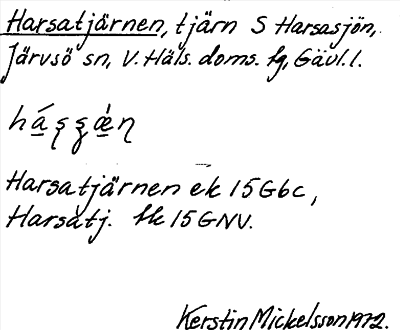 Harsatjärnen, tjärn S Harsasjön,
Järvsö sn, V. Häls. doms. fg, Gävl. l.
Harsatjärnen ek 15G6c,
Harsatj. tk 15GNV.
Kerstin Mickelsson 1972.